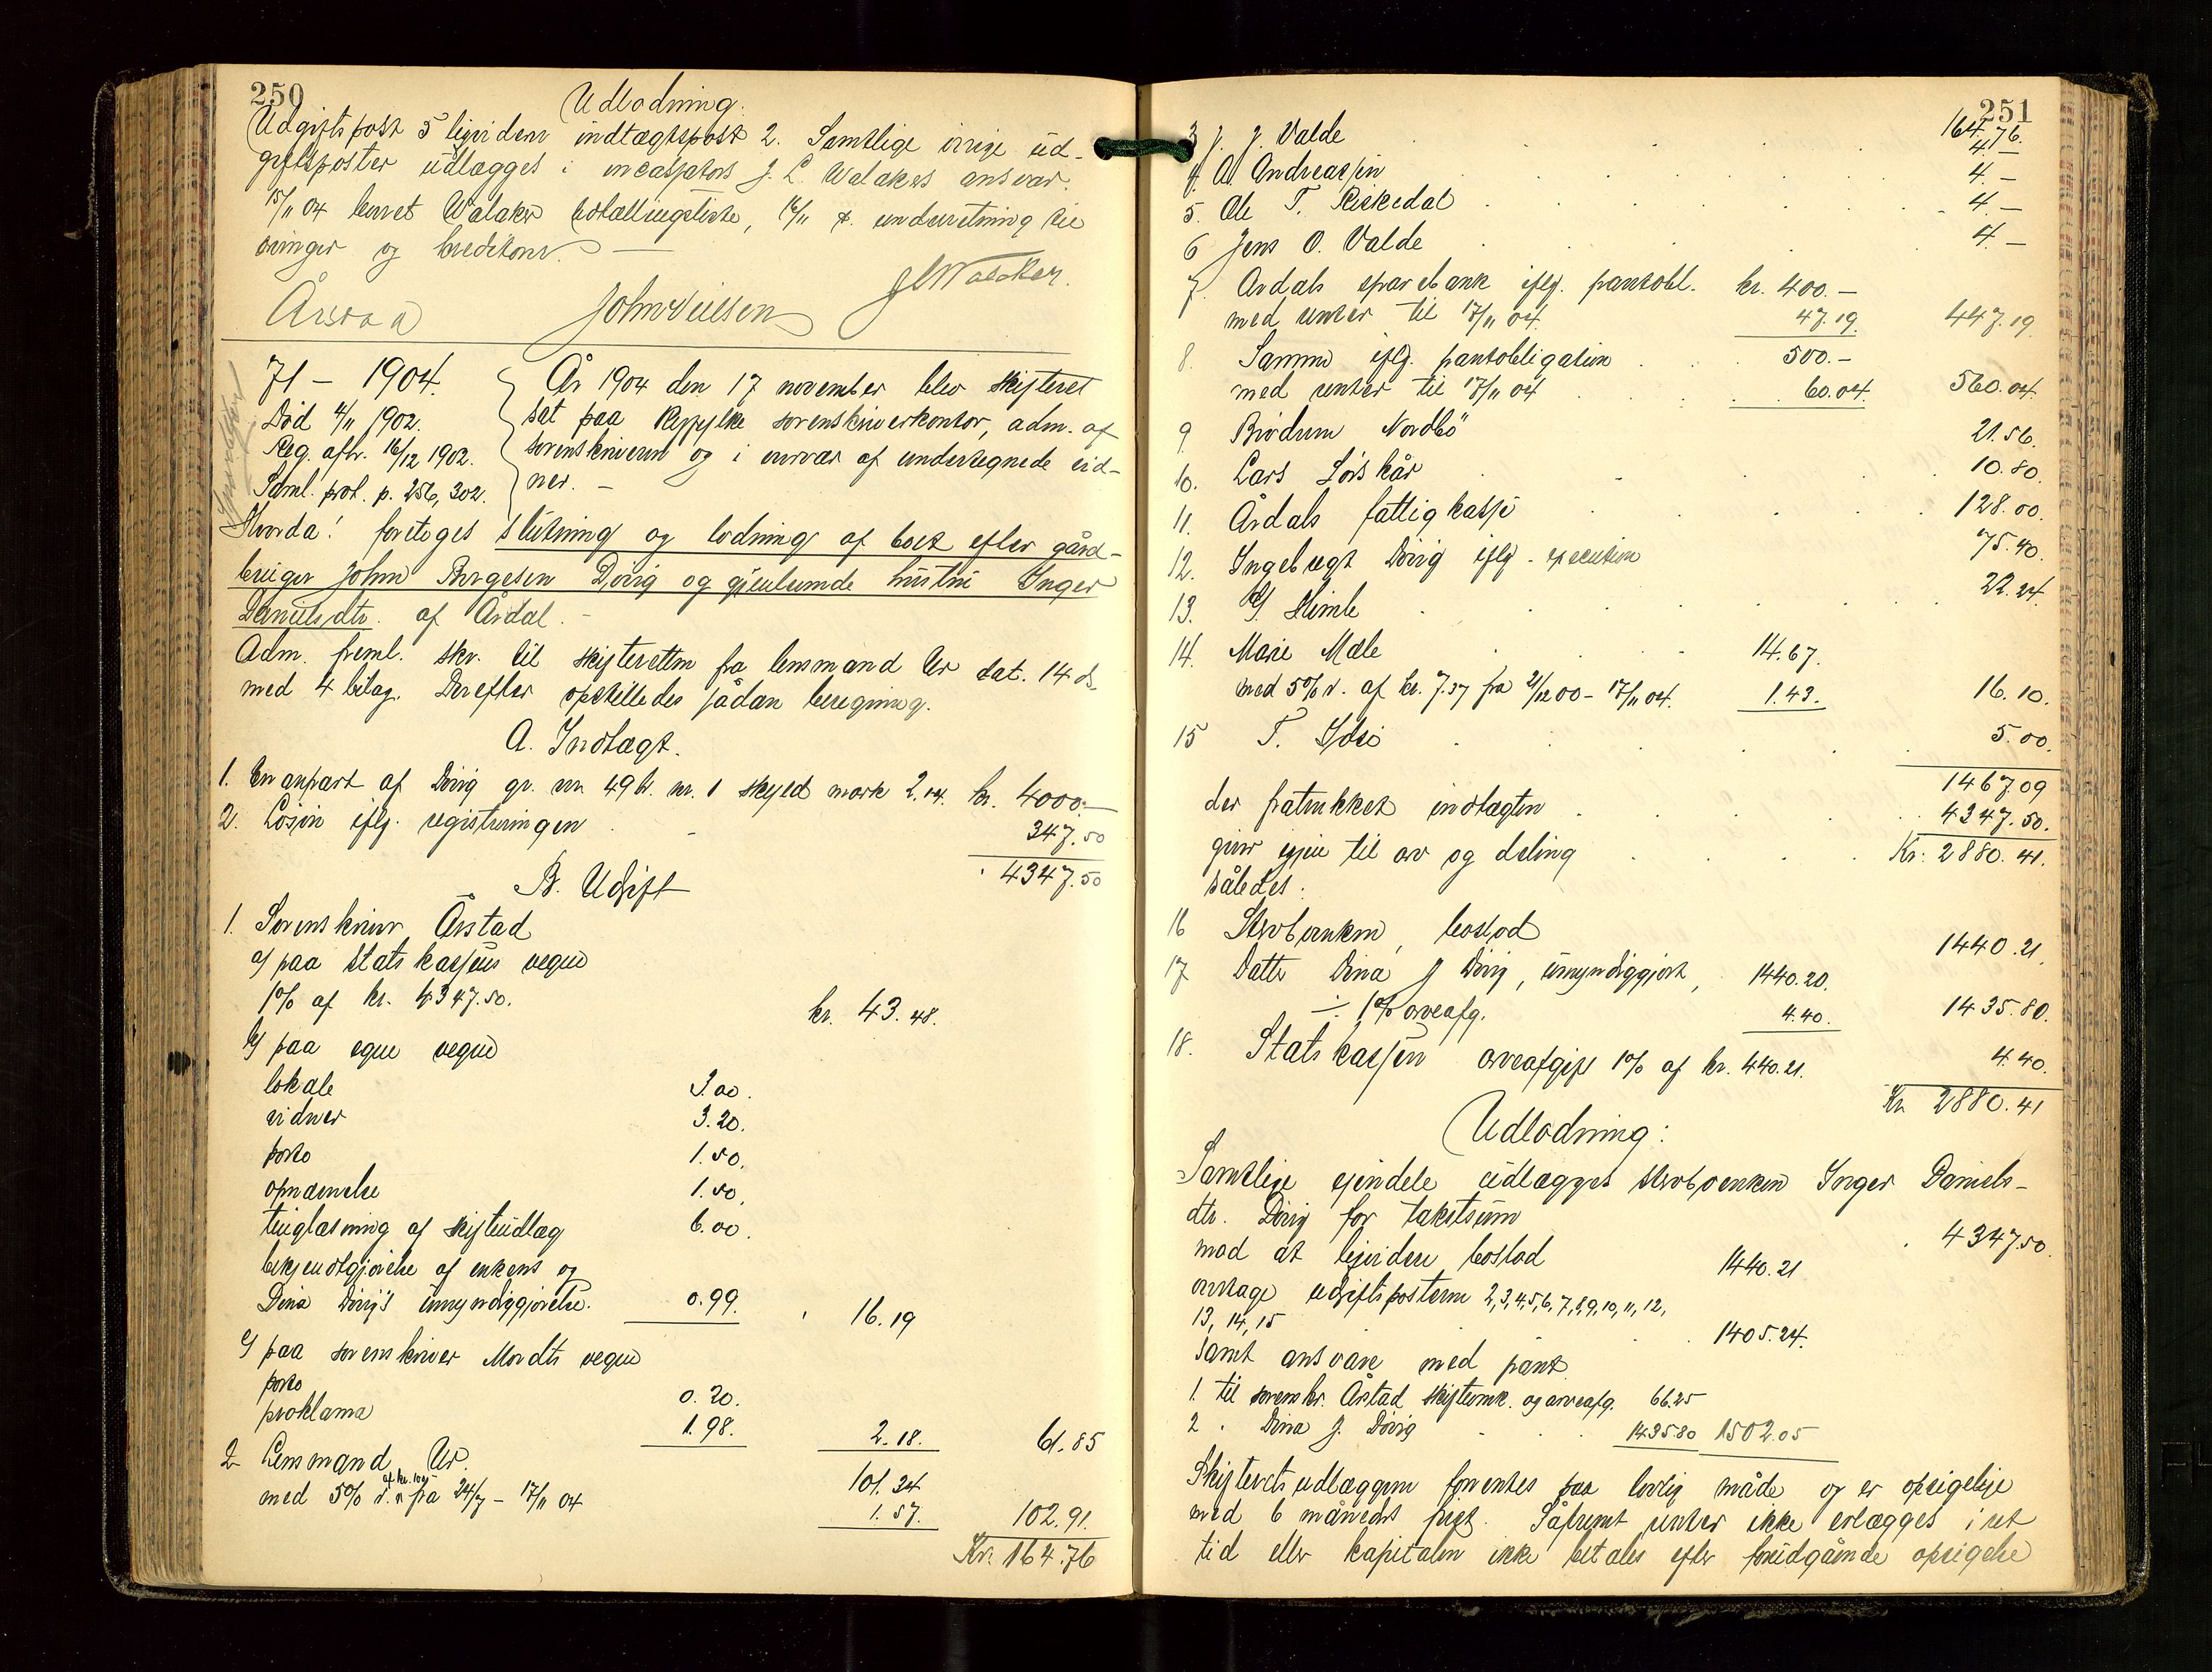 250
Udlodning.
Udgiftspost 5 ligvideres indtægtspost 2. Samtlige øvrige ud-
giftsposter udlægges i incassators J. L. Walakers ansvar.
15/11 04 krevet Walaker, 16/11 d. underretning til
arvinger og kreditorer. —
Årstad John Nilsen J L Walaker.
71 – 1904.
Død 4/11 1902.
Reg. afh. 16/12 1902.
Saml. prot. p. 256, 302.
År 1904 den 17 november blev skifteret
sat paa Ryfylke sorenskriverkontor, adm. af
sorenskriveren og i overvær af undertegnede vid-
ner. —
Hvorda! foretoges slutning og lodning af boet efter gård-
bruger John Børgesen Døvig og gjenlevende hustru Inger
Danielsdtr. af Årdal. —
Adm. freml. skr. til skifteretten fra lensmand Ur dat. 14 ds.
med 4 bilag. Derefter opstilledes sådan beregning.
A. Indtægt.
1. En anpart af Døvig gr. nr. 49 br. nr. 1 skyld mark 2.14. kr. 4000.—
2. Løsøre iflg. registreringen 347.50
4347.50
B. Udgift
1. Sorenskriver Årstad
a) paa statskassens vegne
1% af kr. 4347.50. kr. 43.48.
b) paa egne vegne
lokale 3.00.
vidner 3.20.
porto 1.50.
opnævnelse 1.50.
tinglæsning af skifteudlæg 6.00.
bekjendtgjørelse af enkens og
Dina Døvig's umyndiggjørelse. 0.99. 16.19
c) paa sorenskriver Mordts vegne
porto 0.20.
proklama 1.98. 2.18. 61.85
2 Lensmand Ur. 101.34
med 5% r. af kr. fra 24/7 – 17/11 04 1.57. 102.91.
Kr. 164.76
251
164.76.
3 J. J. Valde 4.—
4. A. Andreassen 4.—
5. Ole T. Riskedal 4.—
6 Jens O. Valde 4.—
7. Årdals sparebank iflg. pantobl. kr. 400.—
med renter til 17/11 04. 47.19. 447.19
8. Samme iflg. pantobligation 500.—
med renter til 17/11 04 60.04. 560.04.
9 Brødrene Nordbö 21.56.
10. Lars Leirkår 10.80.
11. Årdals fattigkasse 128.00.
12. Ingebregt Døvig iflg. execution 75.40.
13. G. Himle 22.24.
14. Marie Mæle 14.67.
med 5% r. af kr. 7.37 fra 21/12 00 – 17/11 04. 1.43. 16.10.
15 T. Idsö 5.00.
1467.09
der fratrukket indtægten 4347.50.
giver igjen til arv og deling Kr. 2880.41.
således:
16 Stervboenken, boslod 1440.21.
17 Datter Dina J Døvig, umyndiggjort, 1440.20.
÷ 1% arveafg. 4.40. 1435.80.
18. Statskassen arveafgift 1% af kr. 440.21. 4.40.
Kr. 2880.41
Udlodning:
Samtlige eiendele udlægges stervboenken Inger Daniels-
dtr. Døvig for takstsum 4347.50.
mod at ligvidere boslod 1440.21
overtage udgiftsposterne 2,3,4,5,6,7,8,9,10,11,12,
13, 14, 15 1405.24.
samt ansvare med pant
1. til sorenskr. Årstad skifteomk. og arveafg. 66.25
2 " Dina J. Døvig 1435.80 1502.05
Skifteretsudlæggene forrentes paa lovlig måde og er opsigelige
med 6 måneders frist. Såfremt renter ikke erlægges i ret
tid eller kapitalen ikke betales efter foreudgående opsigelse